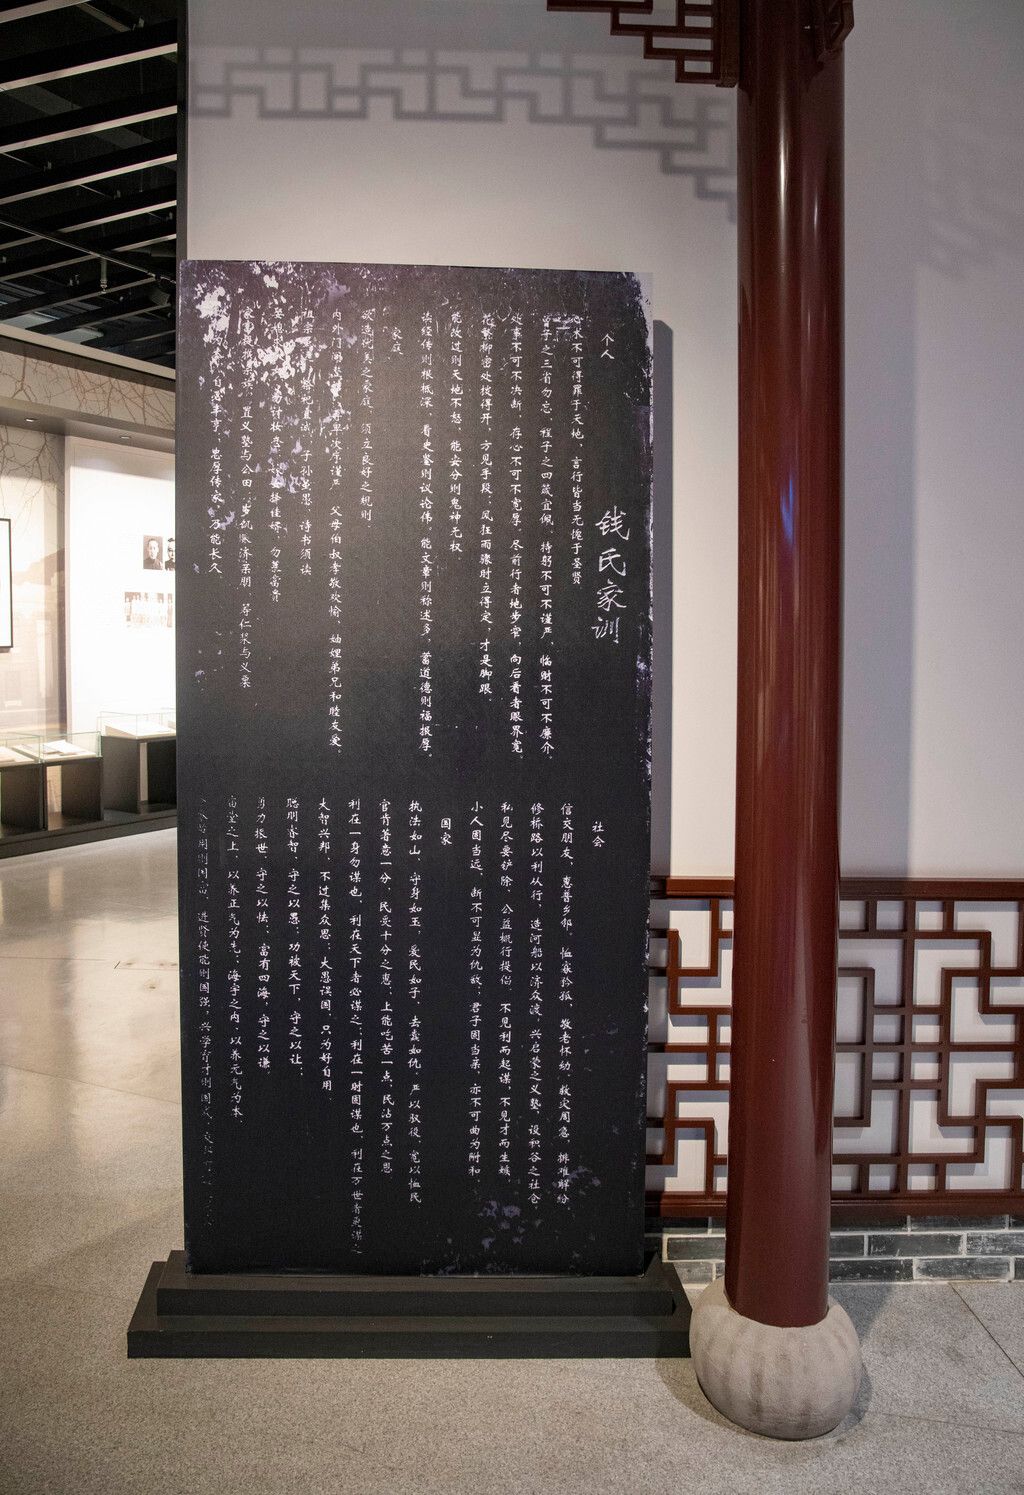 钱氏家训
个人
心术不可得罪于天地、言行皆当无愧于圣贤
曾子之三省勿忘、程子之四箴宜佩、持躬不可不谨严、临财不可不廉介、
处事不可不决断、存心不可不宽厚、尽前行者地步窄、向后看者眼界宽、
花繁柳密处拨得开、方见手段、风狂雨骤时立得定、才是脚跟、
能改过则天地不怒、能安分则鬼神无权
读经传则根柢深、看史鉴则议论伟、能文章则称述多、蓄道德则福报厚、
家庭
欲造优美之家庭、须立良好之规则
内外门闾整洁、尊卑次序谨严、父母伯叔孝敬欢愉、妯娌弟兄和睦友爱、
祖宗 祭祀宜诚、子孙虽愚、诗书须读
娶媳 勿计妆奁、嫁女择佳婿、勿慕富贵
家富提携宗族、置义塾与公田、岁饥赈济亲朋、筹仁浆与义粟
为本、自必丰亨、忠厚传家、乃能长久、
社会
信交朋友、惠普乡邻、恤寡矜孤、敬老怀幼、救灾周急、排难解纷、
修桥路以利从行、造河船以济众渡、兴启蒙之义塾、设积谷之社仓、
私见尽要铲除、公益概行提倡、不见利而起谋、不见才而生嫉、
小人固当远、断不可显为仇敌；君子固当亲、亦不可曲为附和、
国家
执法如山、守身如玉、爱民如子、去蠹如仇、严以驭役、宽以恤民
官肯著意一分、民受十分之惠、上能吃苦一点、民沾万点之恩
利在一身勿谋也、利在天下者必谋之；利在一时固谋也、利在万世者更谋之
大智兴邦、不过集众思；大愚误国、只为好自用、
聪明睿智、守之以愚；功被天下、守之以让；
勇力振世、守之以怯；富有四海、守之以谦
庙堂之上、以养正气为先；海宇之内、以养元气为本、
用则国富、进贤使能则国强、兴学育才则国盛、交